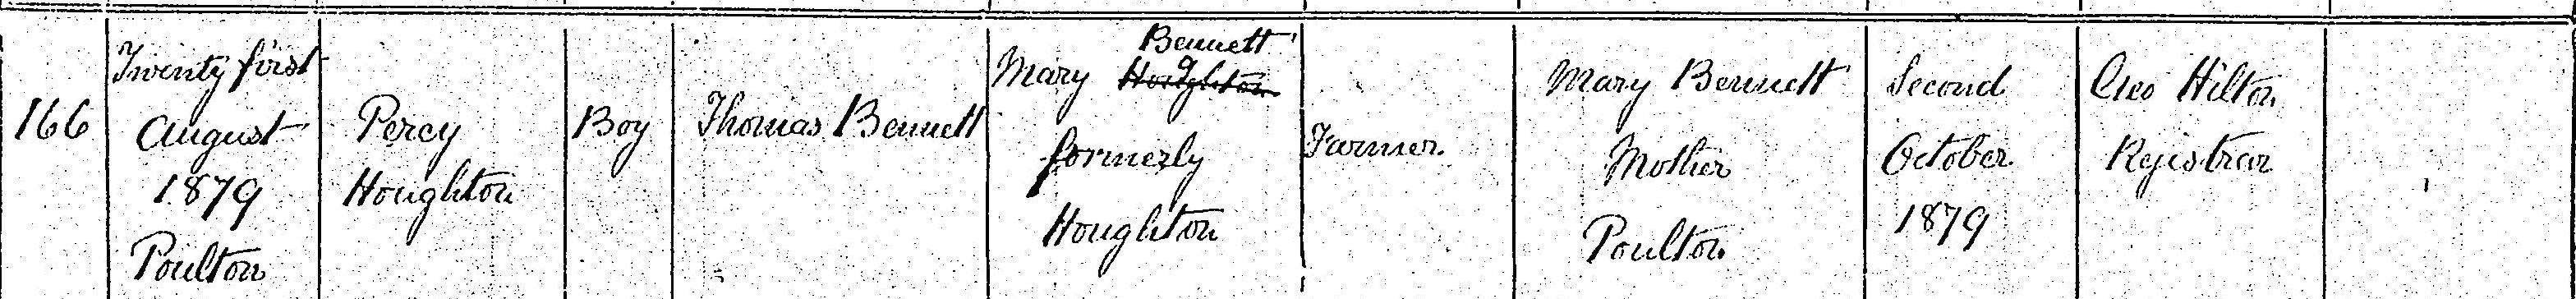 166
Twenty first
August
1879
Poulton
Percy
Houghton
Boy
Thomas Bennett
Bennett
Mary Houghton
formerly
Houghton
Farmer
Mary Bennett
Mother
Poulton
Second
October
1879
Geo Hilton
Registrar